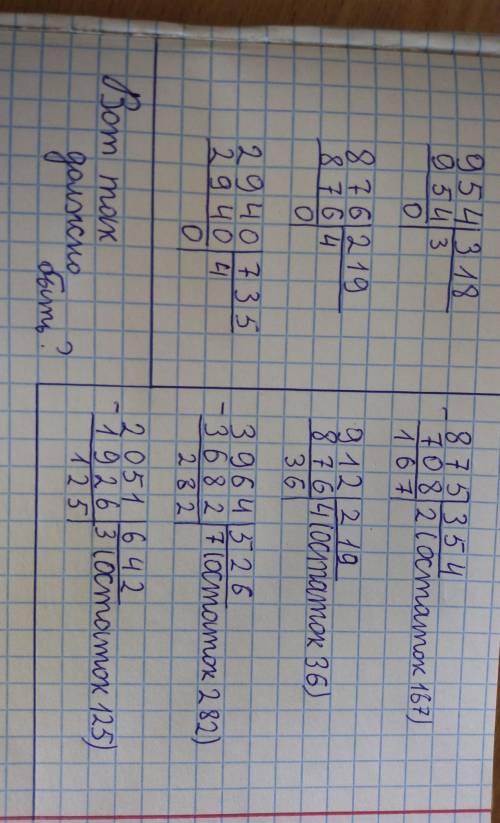 954 318
954 3
0
876 219
876 4
0
2940 735
2940 4
0
Вот так
должно
быть?
- 875 354
708 2 (остаток 167)
167
912 219
876 4 (остаток 36)
36
- 3964 526
3682 7 (остаток 282)
282
- 2051 642
1926 3 (остаток 125)
125